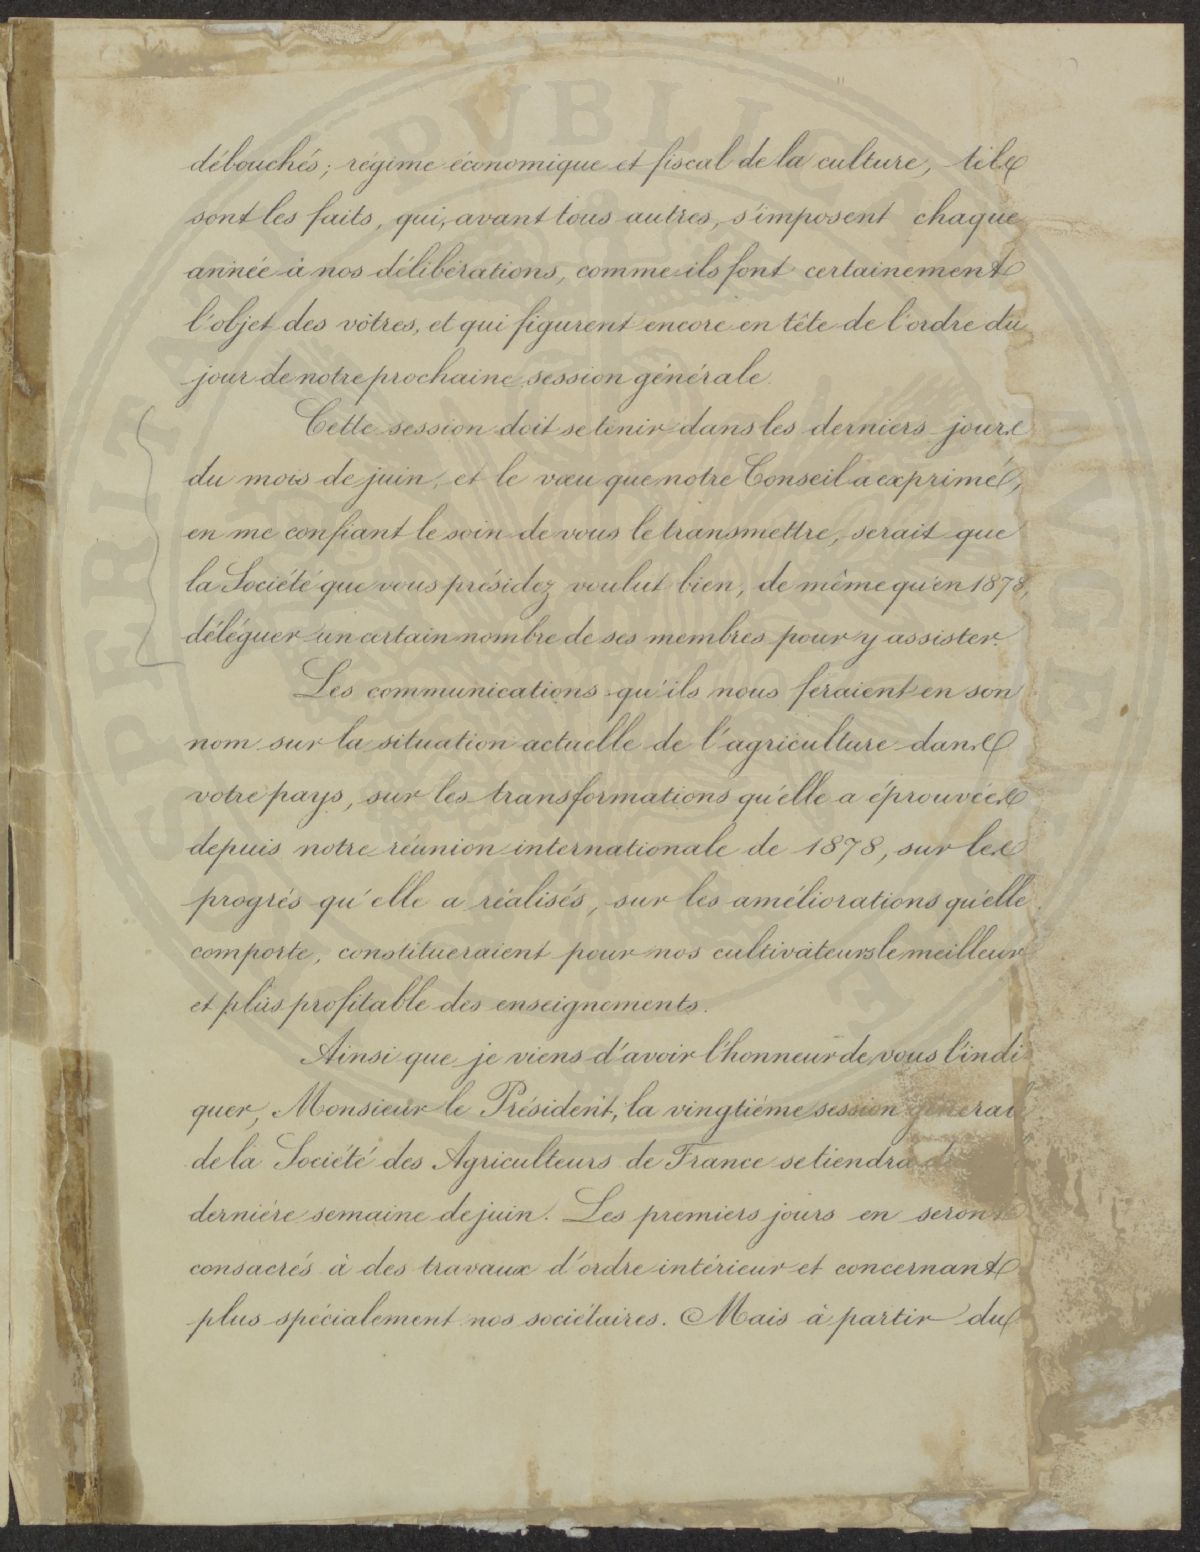 débouchés; régime économique et fiscal de la culture, tels
sont les faits, qui, avant tous autres, s'imposent chaque
année à nos délibérations, comme ils font certainement
l'objet des vôtres, et qui figurent encore en tête de l'ordre du
jour de notre prochaine session générale.
Cette session doit se tenir dans les derniers jours
du mois de juin, et le vœu que notre Conseil a exprimé,
en me confiant le soin de vous le transmettre, serait que
la Société que vous présidez voulut bien, de même qu'en 1878,
déléguer un certain nombre de ses membres pour y assister.
Les communications qu'ils nous feraient en son
nom sur la situation actuelle de l'agriculture dans
votre pays, sur les transformations qu'elle a éprouvées
depuis notre réunion internationale de 1878, sur les
progrès qu'elle a réalisés, sur les améliorations qu'elle
comporte, constitueraient pour nos cultivateurs le meilleur
et plus profitable des enseignements.
Ainsi que je viens d'avoir l'honneur de vous l'indi
quer, Monsieur le Président, la vingtième session général
de la Société des Agriculteurs de France se tiendra
dernière semaine de juin. Les premiers jours en seront
consacrés à des travaux d'ordre intérieur et concernant
plus spécialement nos sociétaires. Mais à partir du